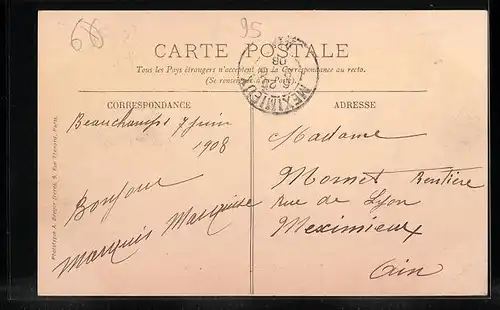 68
95
CARTE POSTALE
Tous les Pays étrangers n'acceptent pas la Correspondance au recto.
(Se renseigner à la Poste).
MEXIMIEUX
08
CORRESPONDANCE
ADRESSE
Beauchamps 7 juin
1908
Bonjour
Marquis Marquise
Madame
Momet Rentière
rue de Lyon
Meximieux
Ain
Phototype A. Breger frères, 9, Rue Thénard, Paris.